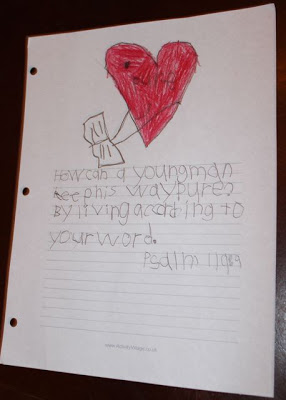 How can a young man
keep his way pure?
By living according to
your word.
Psalm 119:9